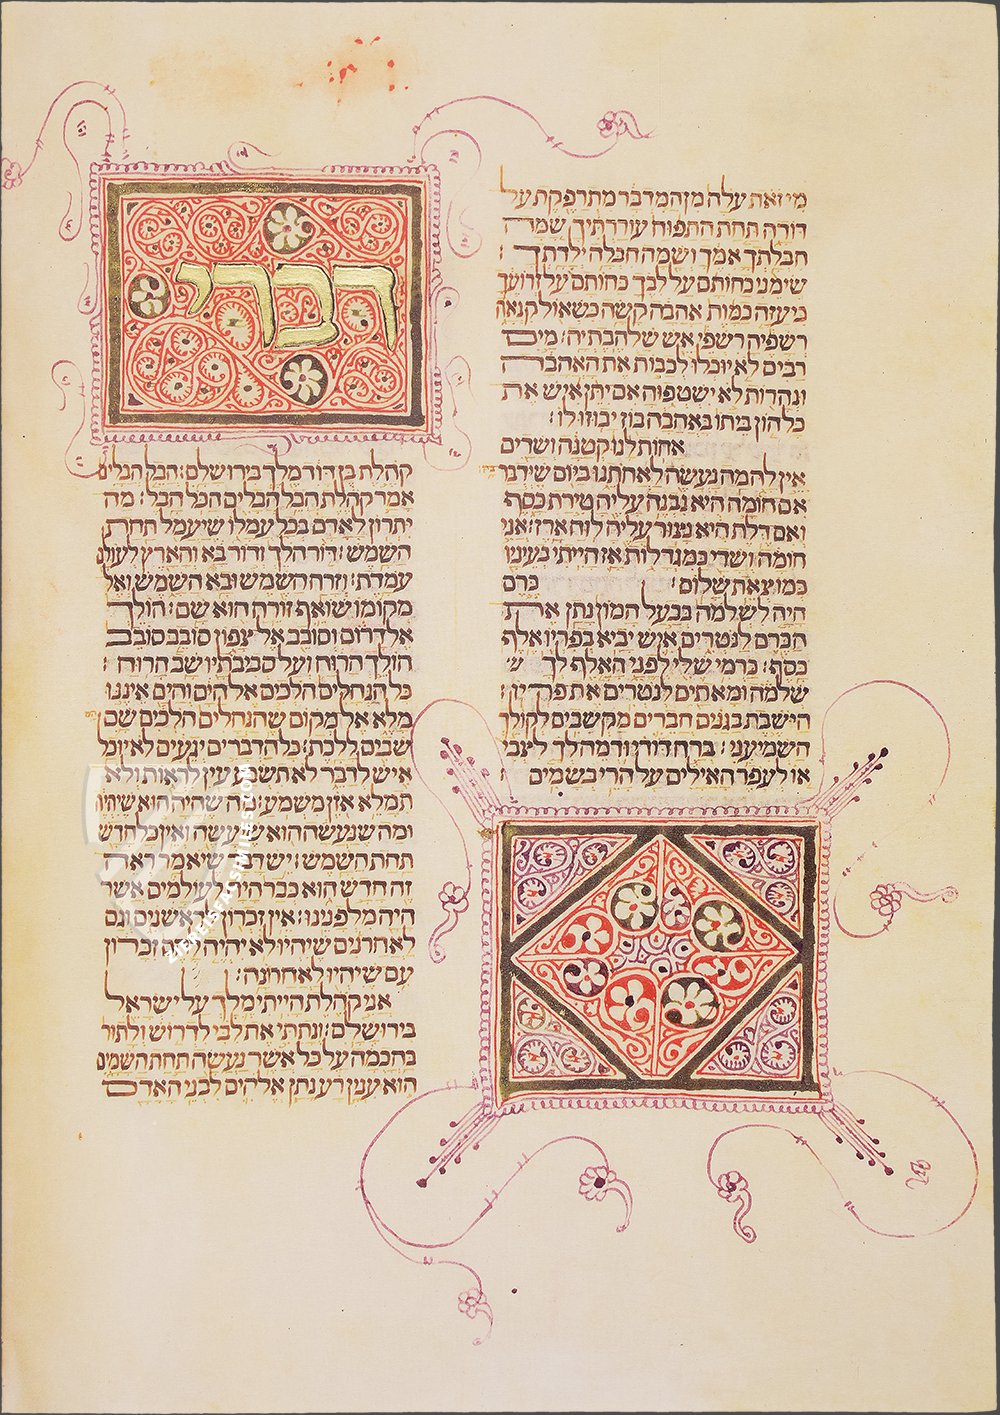 מי זאת עלה מן המדבר מתרפקת על
דודה תחת התפוח עוררתיך שמה
חבלתך אמך ושמה חבלה ילדתך :
שימני כחותם על לבך כחותם על זרועך
כי עזה כמות אהבה קשה כשאול קנאה
רשפיה רשפי אש שלהבתיה : מים
רבים לא יוכלו לכבות את האהבה
ונהרות לא ישטפוה אם יתן איש את
כל הון ביתו באהבה בוז יבוזו לו :
אחות לנו קטנה ושדים
אין לה מה נעשה לאחתנו ביום שידבר
אם חומה היא נבנה עליה טירת כסף
ואם דלת היא נצור עליה לוח ארז : אני
חומה ושדי כמגדלות אז הייתי בעינו
כמוצאת שלום : כרם
היה לשלמה בבעל המון נתן את
הכרם לנטרים איש יביא בפריו אלף
כסף : כרמי שלי לפני האלף לך
שלמה ומאתים לנטרים את פריו :
היושבת בגנים חברים מקשבים לקולך
השמיעני : ברח דודי ודמה לך לצבי
או לעפר האילים על הרי בשמים
דברי
קהלת בן דוד מלך בירושלם : הבל הבלים
אמר קהלת הבל הבלים הכל הבל : מה
יתרון לאדם בכל עמלו שיעמל תחת
השמש : דור הלך ודור בא והארץ לעולם
עמדת : וזרח השמש ובא השמש ואל
מקומו שואף זורח הוא שם : הולך
אל דרום וסובב אל צפון סובב סובב
הולך הרוח ועל סביבתיו שב הרוח :
כל הנחלים הלכים אל הים והים איננו
מלא אל מקום שהנחלים הלכים שם
שבים ללכת : כל הדברים יגעים לא יוכל
איש לדבר לא תשבע עין לראות ולא
תמלא אזן משמע : מה שהיה הוא שיהיה
ומה שנעשה הוא שיעשה ואין כל חדש
תחת השמש : יש דבר שיאמר ראה
זה חדש הוא כבר היה לעולמים אשר
היה מלפנינו : אין זכרון לראשנים וגם
לאחרנים שיהיו לא יהיה להם זכרון
עם שיהיו לאחרונה :
אני קהלת הייתי מלך על ישראל
בירושלם : ונתתי את לבי לדרוש ולתור
בחכמה על כל אשר נעשה תחת השמים
הוא ענין רע נתן אלהים לבני האדם